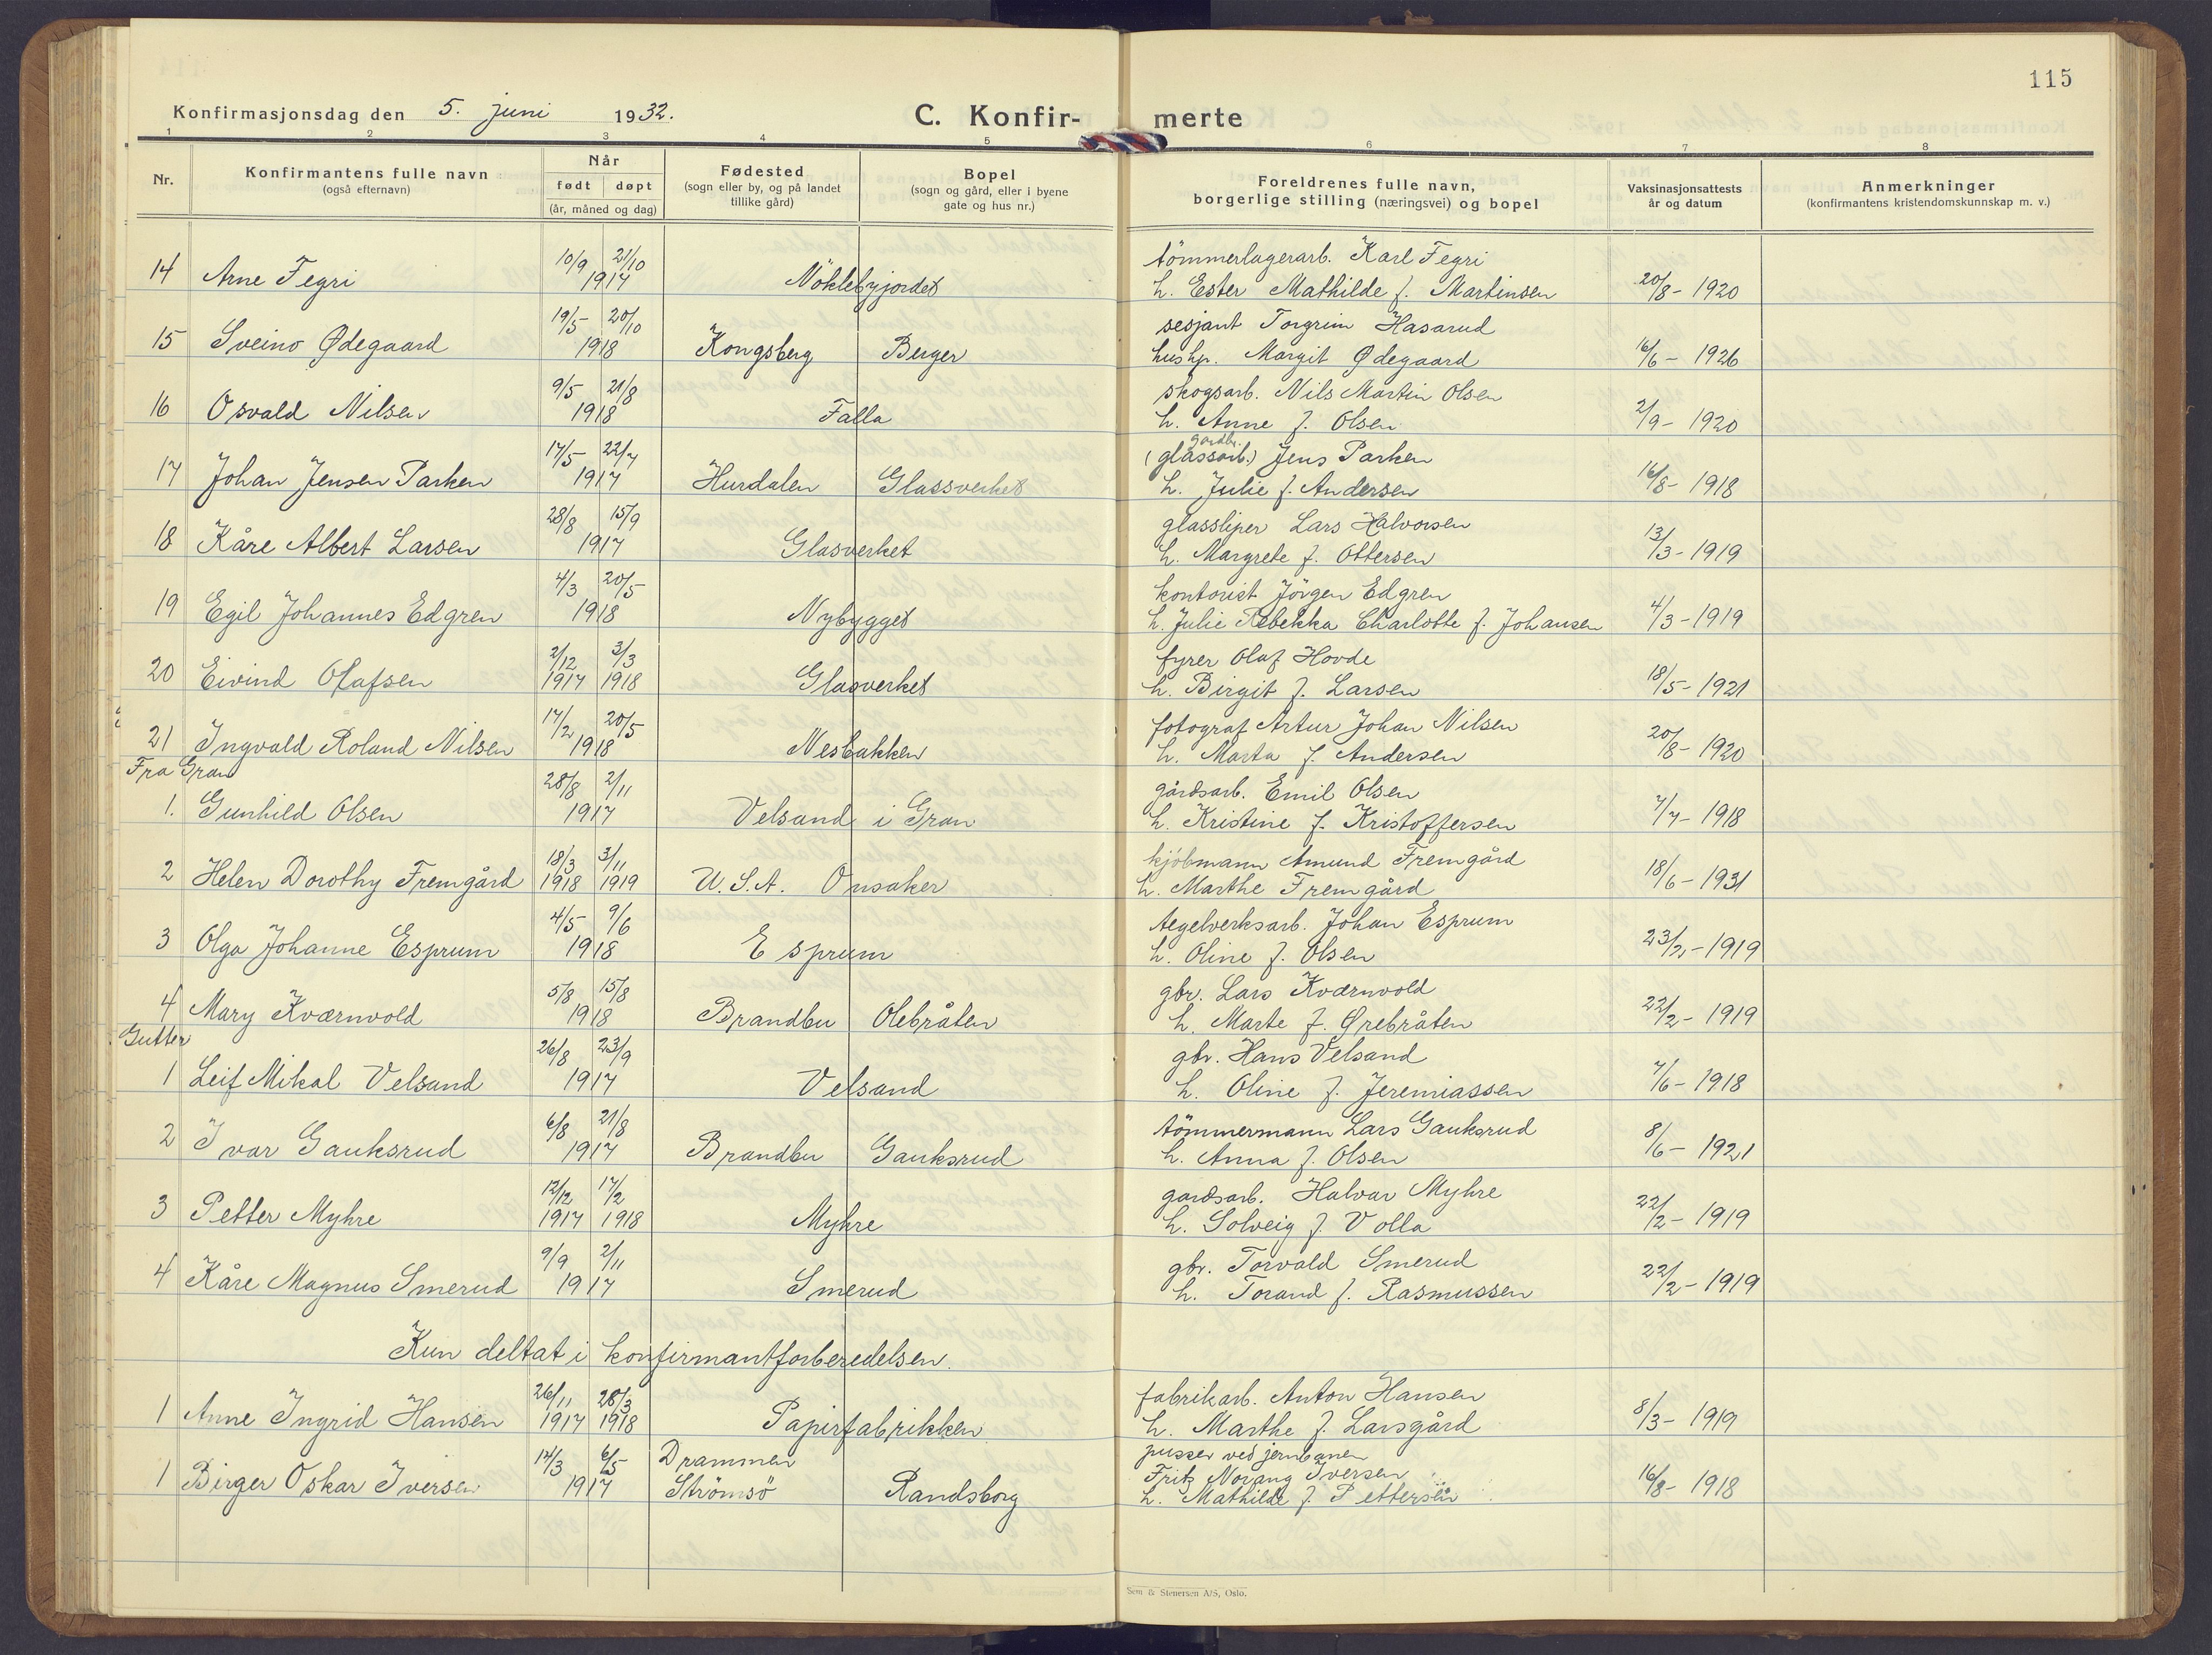 115
Konfirmasjonsdag den 5. juni 1932.
C. Konfir- merte
1 2 3 4 5 6 7 8
Nr.
Konfirmantens fulle navn
(også efternavn)
Når
født døpt
(år, måned og dag)
Fødested
(sogn eller by, og på landet
tillike gård)
Bopel
(sogn og gård, eller i byene
gate og hus nr.)
Foreldrenes fulle navn,
borgerlige stilling (næringsvei) og bopel
Vaksinasjonsattests
år og datum
Anmerkninger
(konfirmantens kristendomskunnskap m. v.)
10/9 21/10 tömmerlagerarb. Karl Fegri
14 Arne Fegri 1917 Nöklebyjordet h. Ester Mathilde f. Martinsen 20/8 - 1920
19/5 20/10 sesjant Torgrim Hasarud
15 Sveino Ødegaard 1918 Kongsberg Berger hushp. Margit Ødegaard 16/6 - 1926
9/5 21/8 skogsarb. Nils Martin Olsen
16 Osvald Nilsen 1918 Falla h. Anne f. Olsen 2/9 - 1920
gardbr.
17/5 22/7 (glassarb.) Jens Parken
17 Johan Jensen Parken 1917 Hurdalen Glassverket h. Julie f. Andersen 16/8 - 1918
28/8 15/9 glassliper Lars Halvorsen
18 Kåre Albert Larsen 1917 Glasverket h. Margrete f. Ottersen 13/3 - 1919
4/3 20/5 kontorist Jörgen Edgren
19 Egil Johannes Edgren 1918 Nybygget h. Julie Rebekka Charlotte f. Johansen 4/3 - 1919
2/12 3/3 fyrer Olaf Hovde
20 Eivind Olafsen 1917 1918 Glasverket h. Birgit f. Larsen 18/5 - 1921
17/2 20/5 fotograf Artur Johan Nilsen
21 Ingvald Roland Nilsen 1918 Nesbakken h. Marta f. Andersen 20/8 - 1920
Fra Gran
28/8 2/11 gårdsarb. Emil Olsen
1. Gunhild Olsen 1917 Velsand i Gran h. Kristine f. Kristoffersen 7/7 - 1918
18/3 3/11 kjöbmann Amund Fremgård
2 Helen Dorothy Fremgård 1918 1919 U.S.A. Onsaker h. Marthe Fremgård 18/6 - 1931
4/5 9/6 tegelverksarb. Johan Esprum
3 Olga Johanne Esprum 1918 Esprum h. Oline f. Olsen 23/2 - 1919
5/8 15/8 gbr. Lars Kværnvold
4 Mary Kværnvold 1918 Brandbu Olebråten h. Marte f. Ørebråten 22/2 - 1919
Gutter
26/8 23/9 gbr. Hans Velsand
1 Leif Mikal Velsand 1917 Velsand h. Oline f. Jeremiassen 7/6 - 1918
6/8 21/8 tömmermann Lars Gauksrud
2 Ivar Gauksrud 1917 Brandbu Gauksrud h. Anna f. Olsen 8/6 - 1921
12/12 17/2 gardsarb. Halvar Myhre
3 Petter Myhre 1917 1918 Myhre h. Solveig f. Volla 22/2 - 1919
9/9 2/11 gbr. Torvald Smerud
4 Kåre Magnus Smerud 1917 Smerud h. Torand f. Rasmussen 22/2 - 1919
Kun deltat i konfirmantforberedelsen.
26/11 28/3 fabrikarb. Anton Hansen
1 Anne Ingrid Hansen 1917 1918 Papirfabrikken h. Marthe f. Larsgård 8/3 - 1919
6/5 Drammen pusser ved jernbanen
Fritz Norang Iversen
1 Birger Oskar Iversen 1917 Strömsö Randsborg h. Mathilde f. Pettersen 16/8 - 1918
Sem & Stenersen A/S, Oslo.